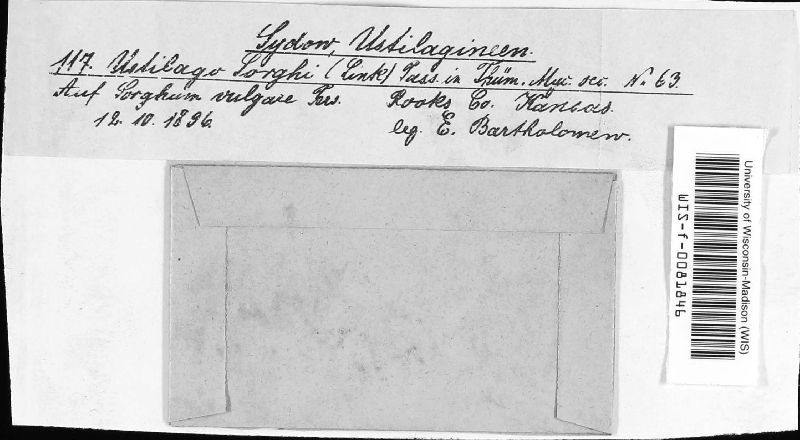 Sydow, Ustilagineen.
117. Ustilago Sorghi (Link) Pass. in Thüm. Myc. sec. No 63.
Auf Sorghum vulgare Pers. Rooks Co. Kansas.
12. 10. 1896. leg. E. Bartholomew.
University of Wisconsin-Madison (WIS)
WIS-f-0081846